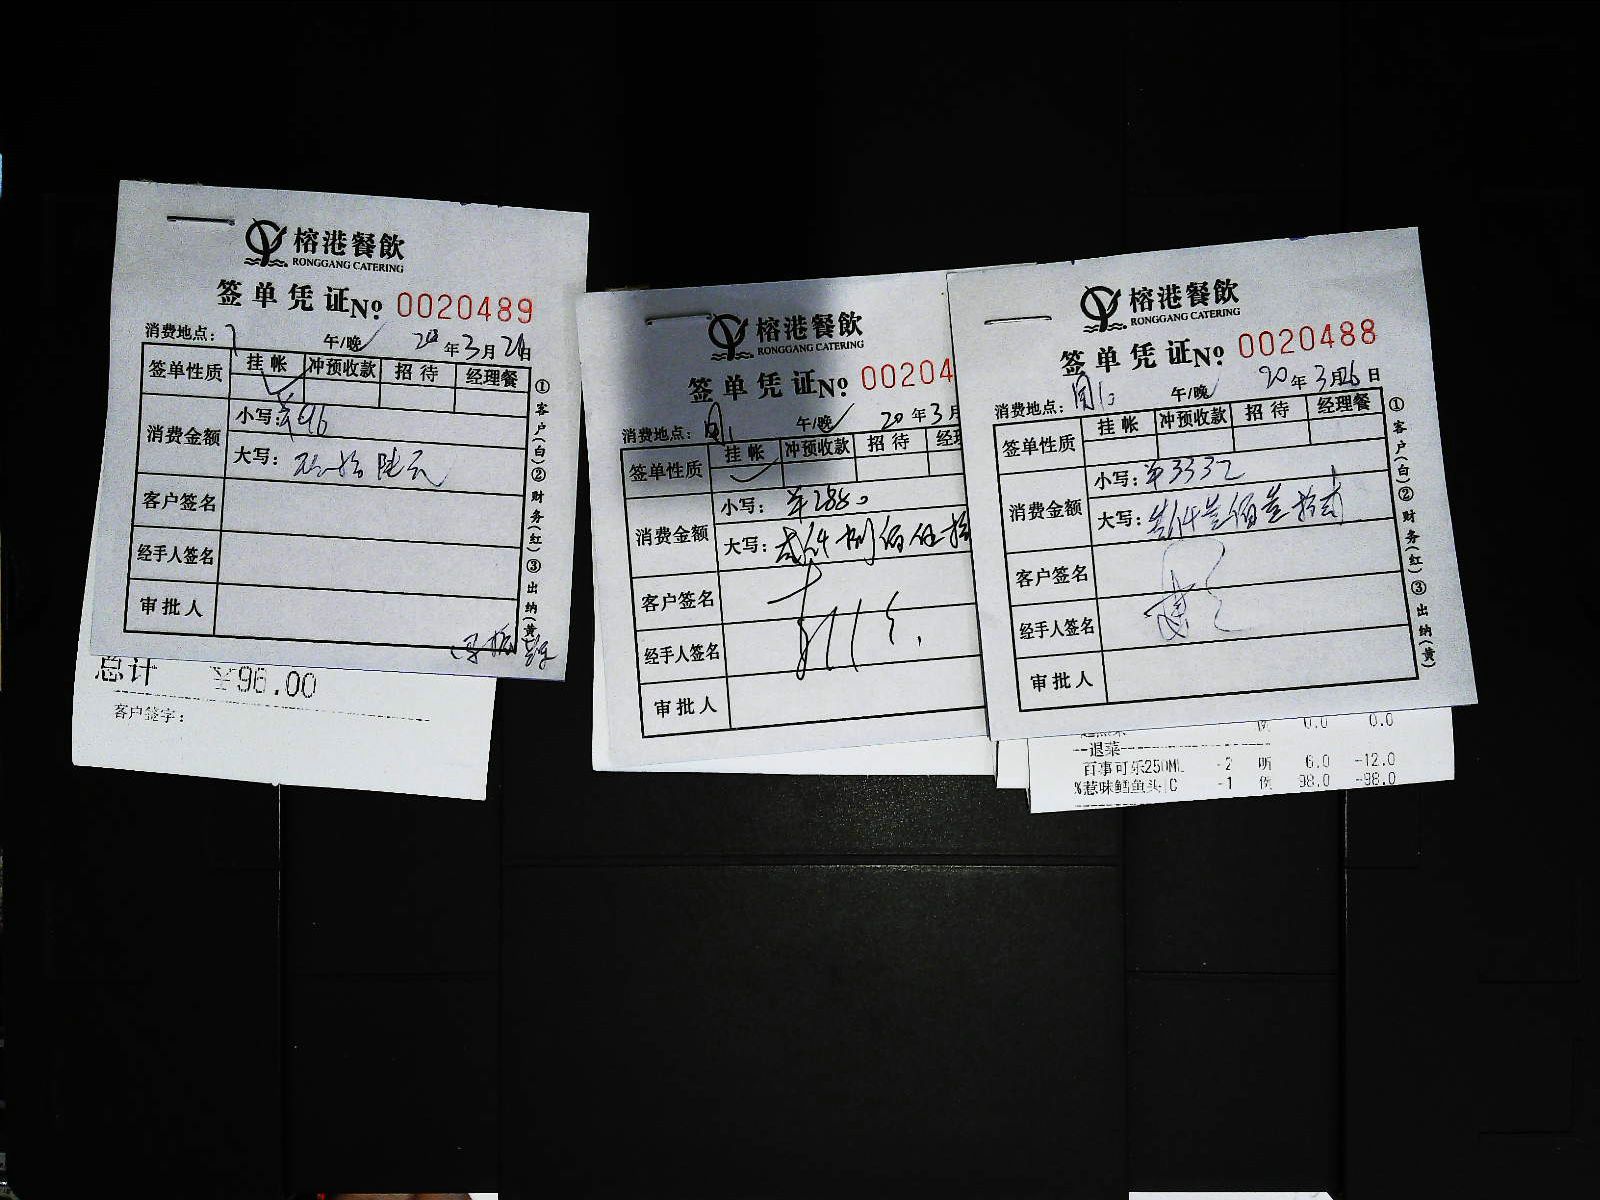 榕港餐飲
RONGGANG CATERING
签单凭证 No 0020489
消费地点: 午/晚 20年3月26日
签单性质 挂帐 冲预收款 招待 经理餐
消费金额 小写: ¥96
大写: 玖拾陆元
客户签名
经手人签名
审批人
①客户(白)②财务(红)③出纳(黄)
总计 ¥96.00
客户签字:
榕港餐飲
RONGGANG CATERING
签单凭证 No 00204
消费地点: 午/晚 20年3月
签单性质 挂帐 冲预收款 招待 经理
消费金额 小写: ¥2880
大写: 贰仟捌佰捌拾
客户签名
经手人签名
审批人
榕港餐飲
RONGGANG CATERING
签单凭证 No 0020488
消费地点: 午/晚 20年3月26日
签单性质 挂帐 冲预收款 招待 经理餐
消费金额 小写: ¥3332
大写: 叁仟叁佰叁拾贰
客户签名
经手人签名
审批人
①客户(白)②财务(红)③出纳(黄)
例 0.0 0.0
--退菜--
百事可乐250ML -2 听 6.0 -12.0
%惹味鳕鱼头|C -1 例 98.0 -98.0